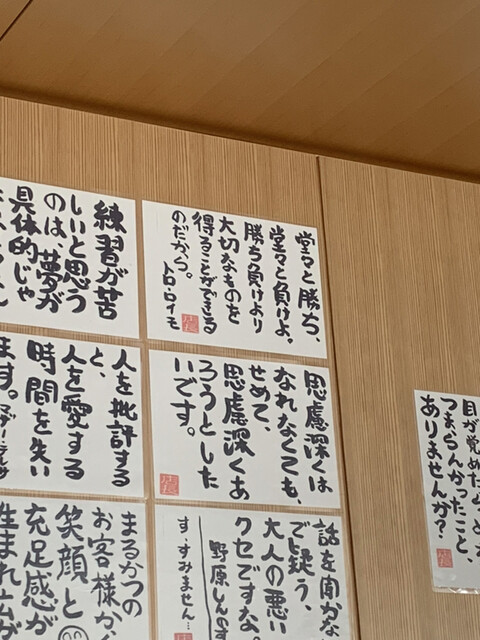 堂々と勝ち、
堂々と負けよ。
勝ち負けより
大切なものを
得ることができる
のだから。
トロ・ロイモ
練習が苦
しいと思う
のは、夢が
具体的じゃ
思慮深くは
なれなくても、
せめて、
思慮深くあ
ろうとした
いです。
人を批評する
と、
人を愛する
時間を失い
ます。
話を聞かな
で疑う、
大人の悪い
クセですな
野原しんのす
す、すみません…
まるかつの
お客様か
笑顔と
充足感が
生まれ広が
目が覚めたら
つまらんかったこと、
ありませんか?